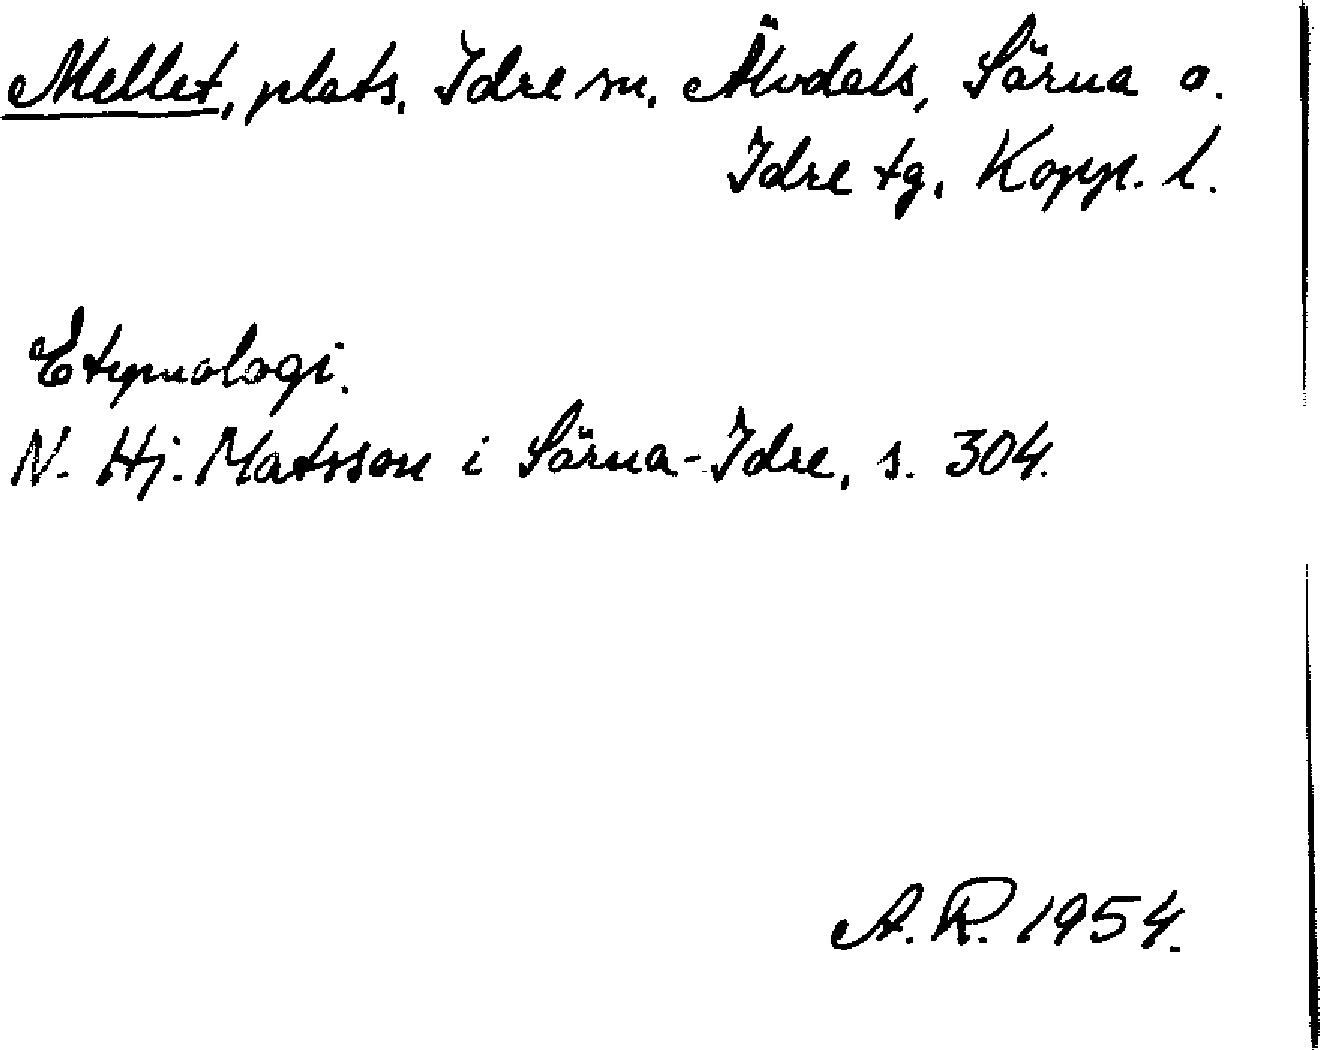 Mellet, plats, Idre sn, Älvdals, Särna o.
Idre tg, Kopp. l.
Etymologi.
N. Hj. Matsson i Särna-Idre, s. 304.
A. R. 1954.